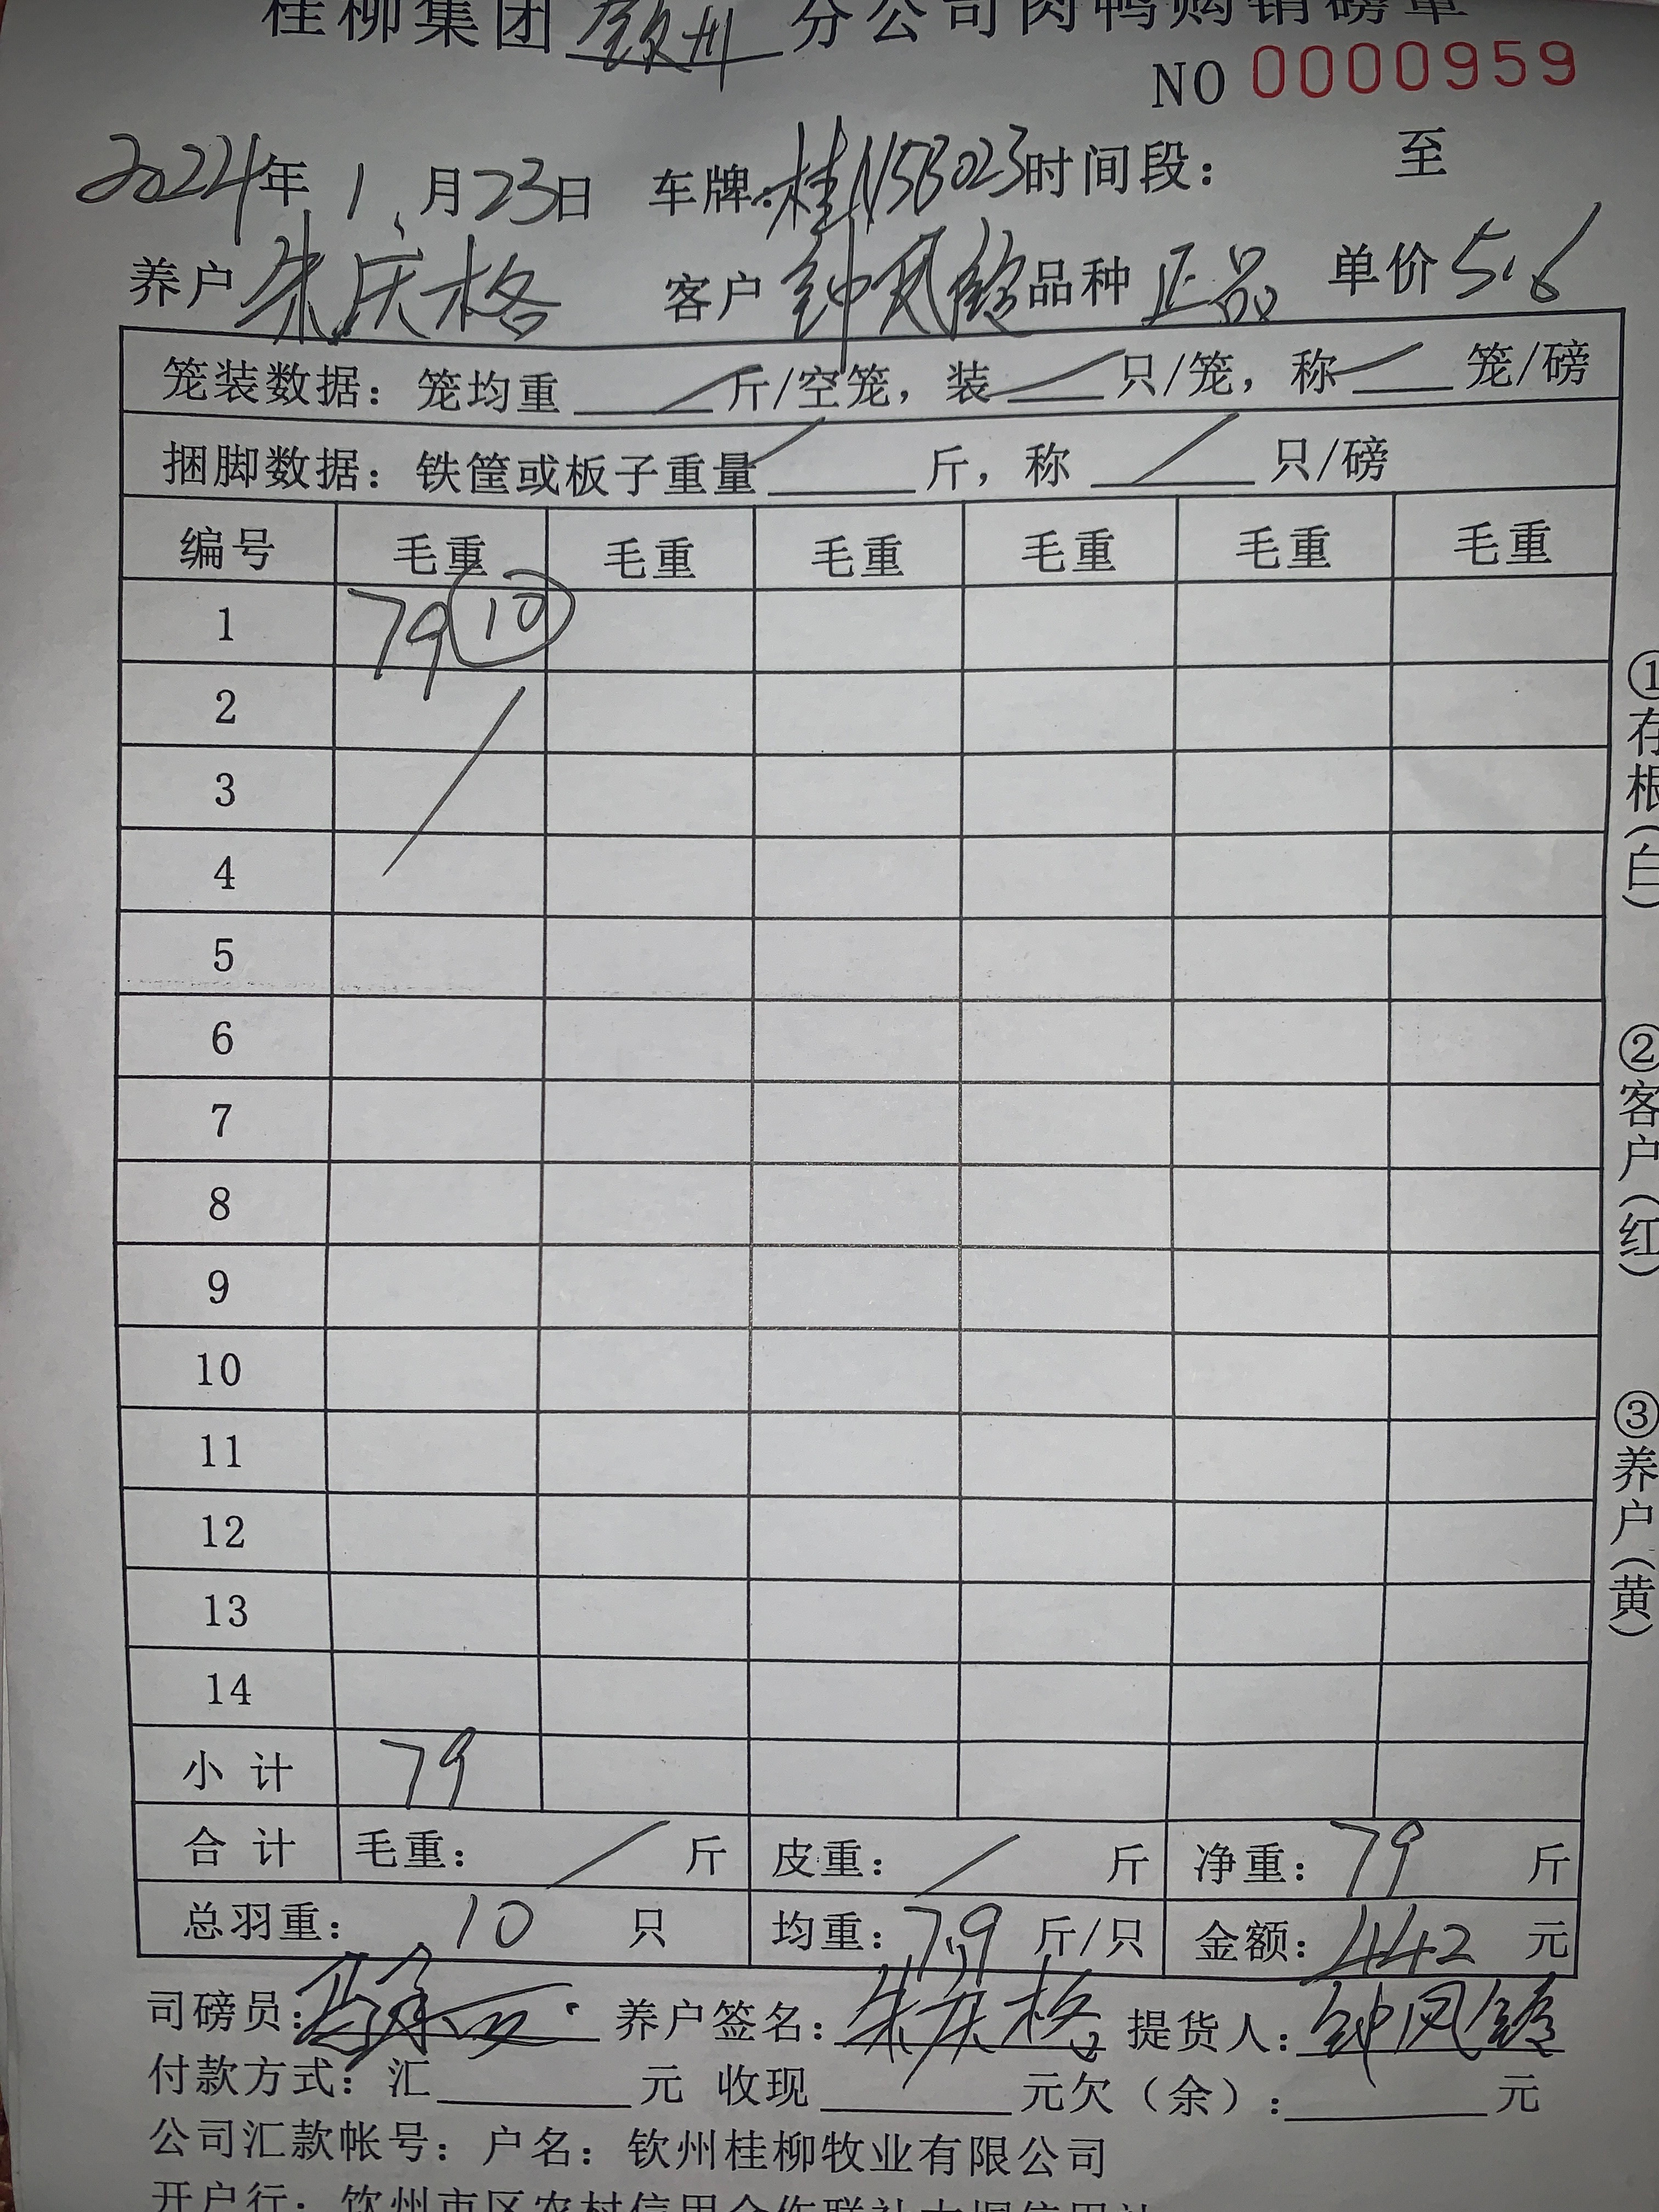 桂柳集团钦州分公司肉鸭购销磅单
NO 0000959
2024年1月23日 车牌:桂N5B023时间段: 至
养户朱庆格 客户钟凤铃品种正品 单价5.6
笼装数据: 笼均重 / 斤/空笼, 装 / 只/笼, 称 / 笼/磅
捆脚数据: 铁筐或板子重量 / 斤, 称 / 只/磅
编号 毛重 毛重 毛重 毛重 毛重 毛重
1 79 10
2
3
4
5
6
7
8
9
10
11
12
13
14
小计 79
合计 毛重: / 斤 皮重: / 斤 净重: 79 斤
总羽重: 10 只 均重: 7.9 斤/只 金额: 442 元
司磅员: 养户签名: 朱庆格 提货人: 钟凤铃
付款方式: 汇 元 收现 元欠(余): 元
公司汇款帐号: 户名: 钦州桂柳牧业有限公司
开户行: 钦州市区农村信用合作联社大垌信用社
①存根(白)
②客户(红)
③养户(黄)